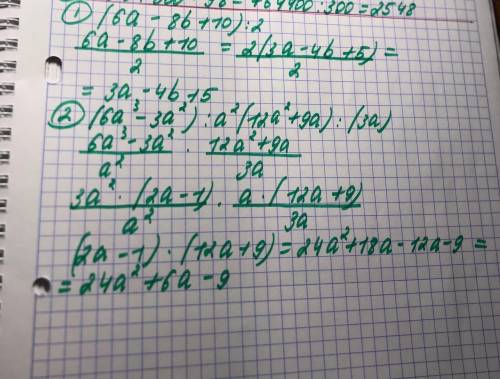 400 : 300 = 2548
① (6a - 8b + 10) : 2
(6a - 8b + 10)/2 = 2(3a - 4b + 5)/2 =
= 3a - 4b + 5
② (6a³ - 3a²) : a² (12a² + 9a) : (3a)
(6a³ - 3a²)/a² · (12a² + 9a)/3a
3a² · (2a - 1)/a² · a · (12a + 9)/3a
(2a - 1) · (12a + 9) = 24a² + 18a - 12a - 9 =
= 24a² + 6a - 9